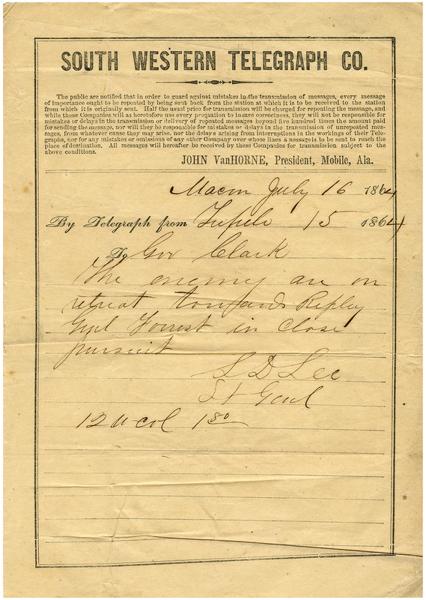 SOUTH WESTERN TELEGRAPH CO.
The public are notified that in order to guard against mistakes in the transmission of messages, every message
of importance ought to be repeated by being sent back from the station at which it is to be received to the station
from which it is originally sent. Half the usual price for transmission will be charged for repeating the message, and
while these Companies will as heretofore use every precaution to insure correctness, they will not be responsible for
mistakes or delays in the transmission or delivery of repeated messages beyond five hundred times the amount paid
for sending the message, nor will they be responsible for mistakes or delays in the transmission of unrepeated mes-
sages, from whatever cause they may arise, nor the delays arising from interruptions in the workings of their Tele-
graphs, nor for any mistakes or omissions of any other Company over whose lines a message is to be sent to reach the
place of destination. All messages will hereafter be received by these Companies for transmission subject to the
above conditions.
JOHN VanHORNE, President, Mobile, Ala.
Macon July 16 1864
By Telegraph from Tupelo 15 1864
To Gov Clark
The enemy are on
retreat towards Ripley
Genl Forrest in close
pursuit
S D Lee
Lt Genl
12 u col 180